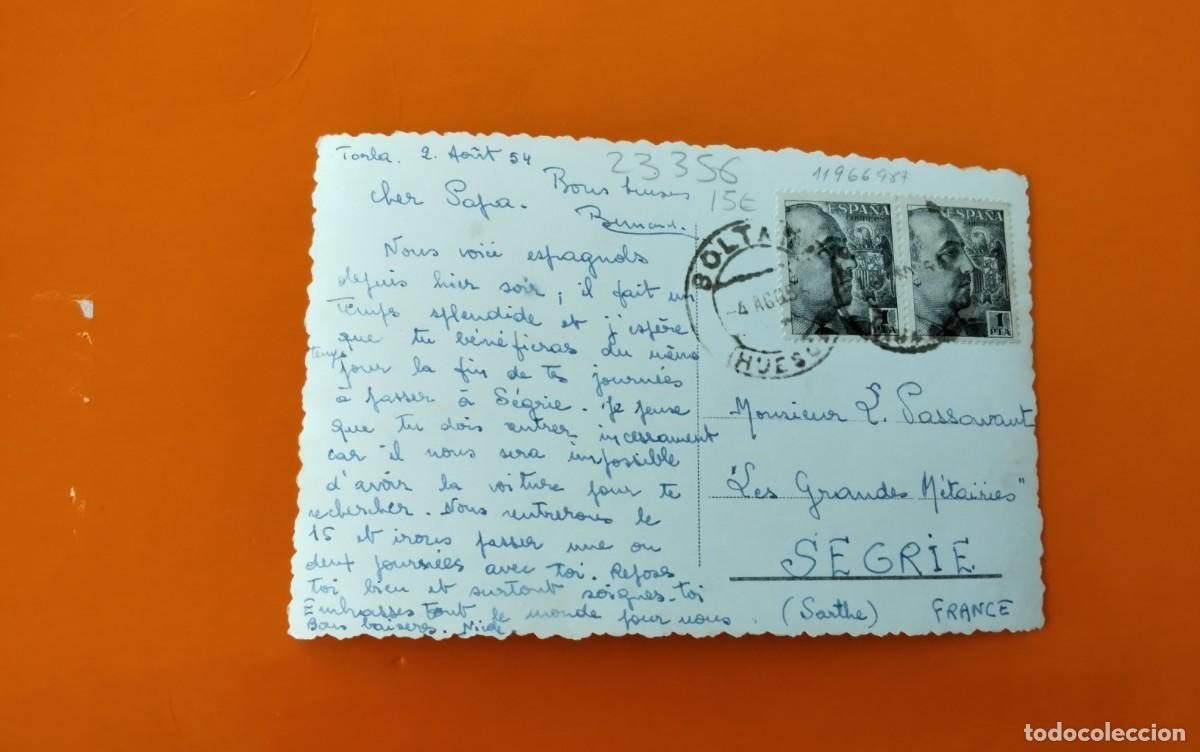 Torla. 2. Août 54
23356
11966987
15€
cher Papa.
Bons
Bernard.
Nous voici espagnols
depuis hier soir ; il fait un
temps splendide et j'espère
que tu bénéficras du même
temps
pour la fin de tes journées
à passer à Ségrie. Je pense
que tu dois rentrer incessament
car il nous sera impossible
d'avoir la voiture pour te
rechercher. Nous rentrerons le
15 et irons passer une ou
deux journées avec toi. Reposes
toi bien et surtout soignes-toi
Embrasses tout le monde pour nous
Bons baisers.
ESPAÑA
CORREOS
1
PTA
ESPAÑA
1
PTA
BOLTAÑA
-4 AGO
(HUESCA
Monsieur L. Passavant
"Les Grandes Métairies"
SEGRIE
(Sarthe) FRANCE
todocoleccion